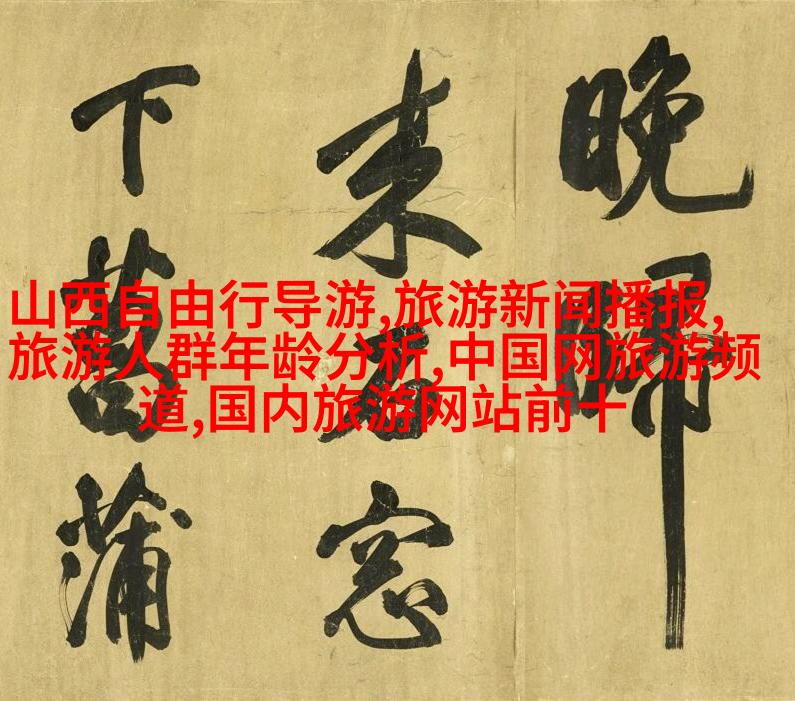 晚歸
来石窓
下菖蒲
山西自由行导游,旅游新闻播报,
旅游人群年龄分析,中国网旅游频
道,国内旅游网站前十